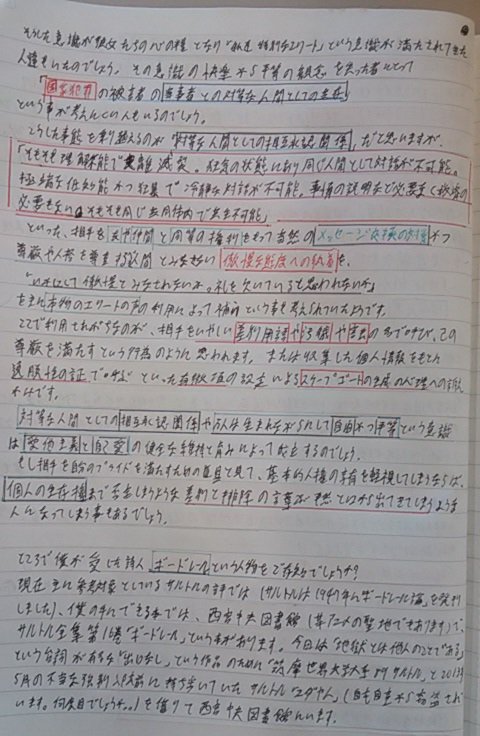 そうした意識が彼女たちの心の糧となり"私達特別なエリート"という意識が満たされて来た
人達もいたのでしょう。その意識の快楽から平等の観念を失った者にとって
「国家犯力の被害者の当事者との対等な人間としての
という事が考えの人もいるのでしょう。
こうした事態を乗り越えるのが「対等な人間としての相互承認関係」だと思いますが、
「そもそも理解不能で支離滅裂。狂気の状態にあり同じ人間として対話が不可能。
極端な低知能かつ狂気で冷静な対話が不可能。事情の説明など必要なく
必要もない。そもそも同じ共同体内で共生不可能」
といった、相手を同等の権利をもって当然のメッセージ交換の対象かつ
尊厳や人権を尊重する人間とみなさない傲慢な態度への
いかにして傲慢とみなされないか。礼を欠いていると思われないか
をまた本物のエリートの声の利用によって補う という事も考えられていたようです。
ここで利用されがちなのが、相手をいやしい差別用語や でけがし、この
尊厳を満たすという行為のように思われます。または収集した個人情報をもとに
といった 設定によるスケープゴートの生成の心理への
わけです。
対等な人間としての相互承認関係や万人は生まれながらにして自由かつ平等という意識
は愛他主義と自己愛の健全な 育みによって成立するのでしょう。
もし相手を自分のプライドを満たすための道具と見て、基本的人権の享有を軽視してしまうならば、
個人の生存権まで否定しまうような差別と排除の言葉が平然と口から出てきてしまうような
人になってしまう事もあるでしょう。
ところで僕が愛した詩人ボードレールという人物をご存知でしょうか?
現在主に参考対象としているサルトルの評では(サルトルは1947年に"ボードレール論"を発刊
しました)、僕の手にできる本では、西宮中央図書館(某アニメの聖地でもあります)で、
サルトル全集第16巻"ボードレール"という本があります。今回は"地獄とは他人のことである"
という台詞がある"出口なし"という作品のために"筑摩世界文学大系 サルトル"と2013年
5月の不当な強制入院前に持ち歩いていたサルトル"ユダヤ人"(自宅自室から窃盗され
います。何度目でしょうか。)を借りて西宮中央図書館にいます。